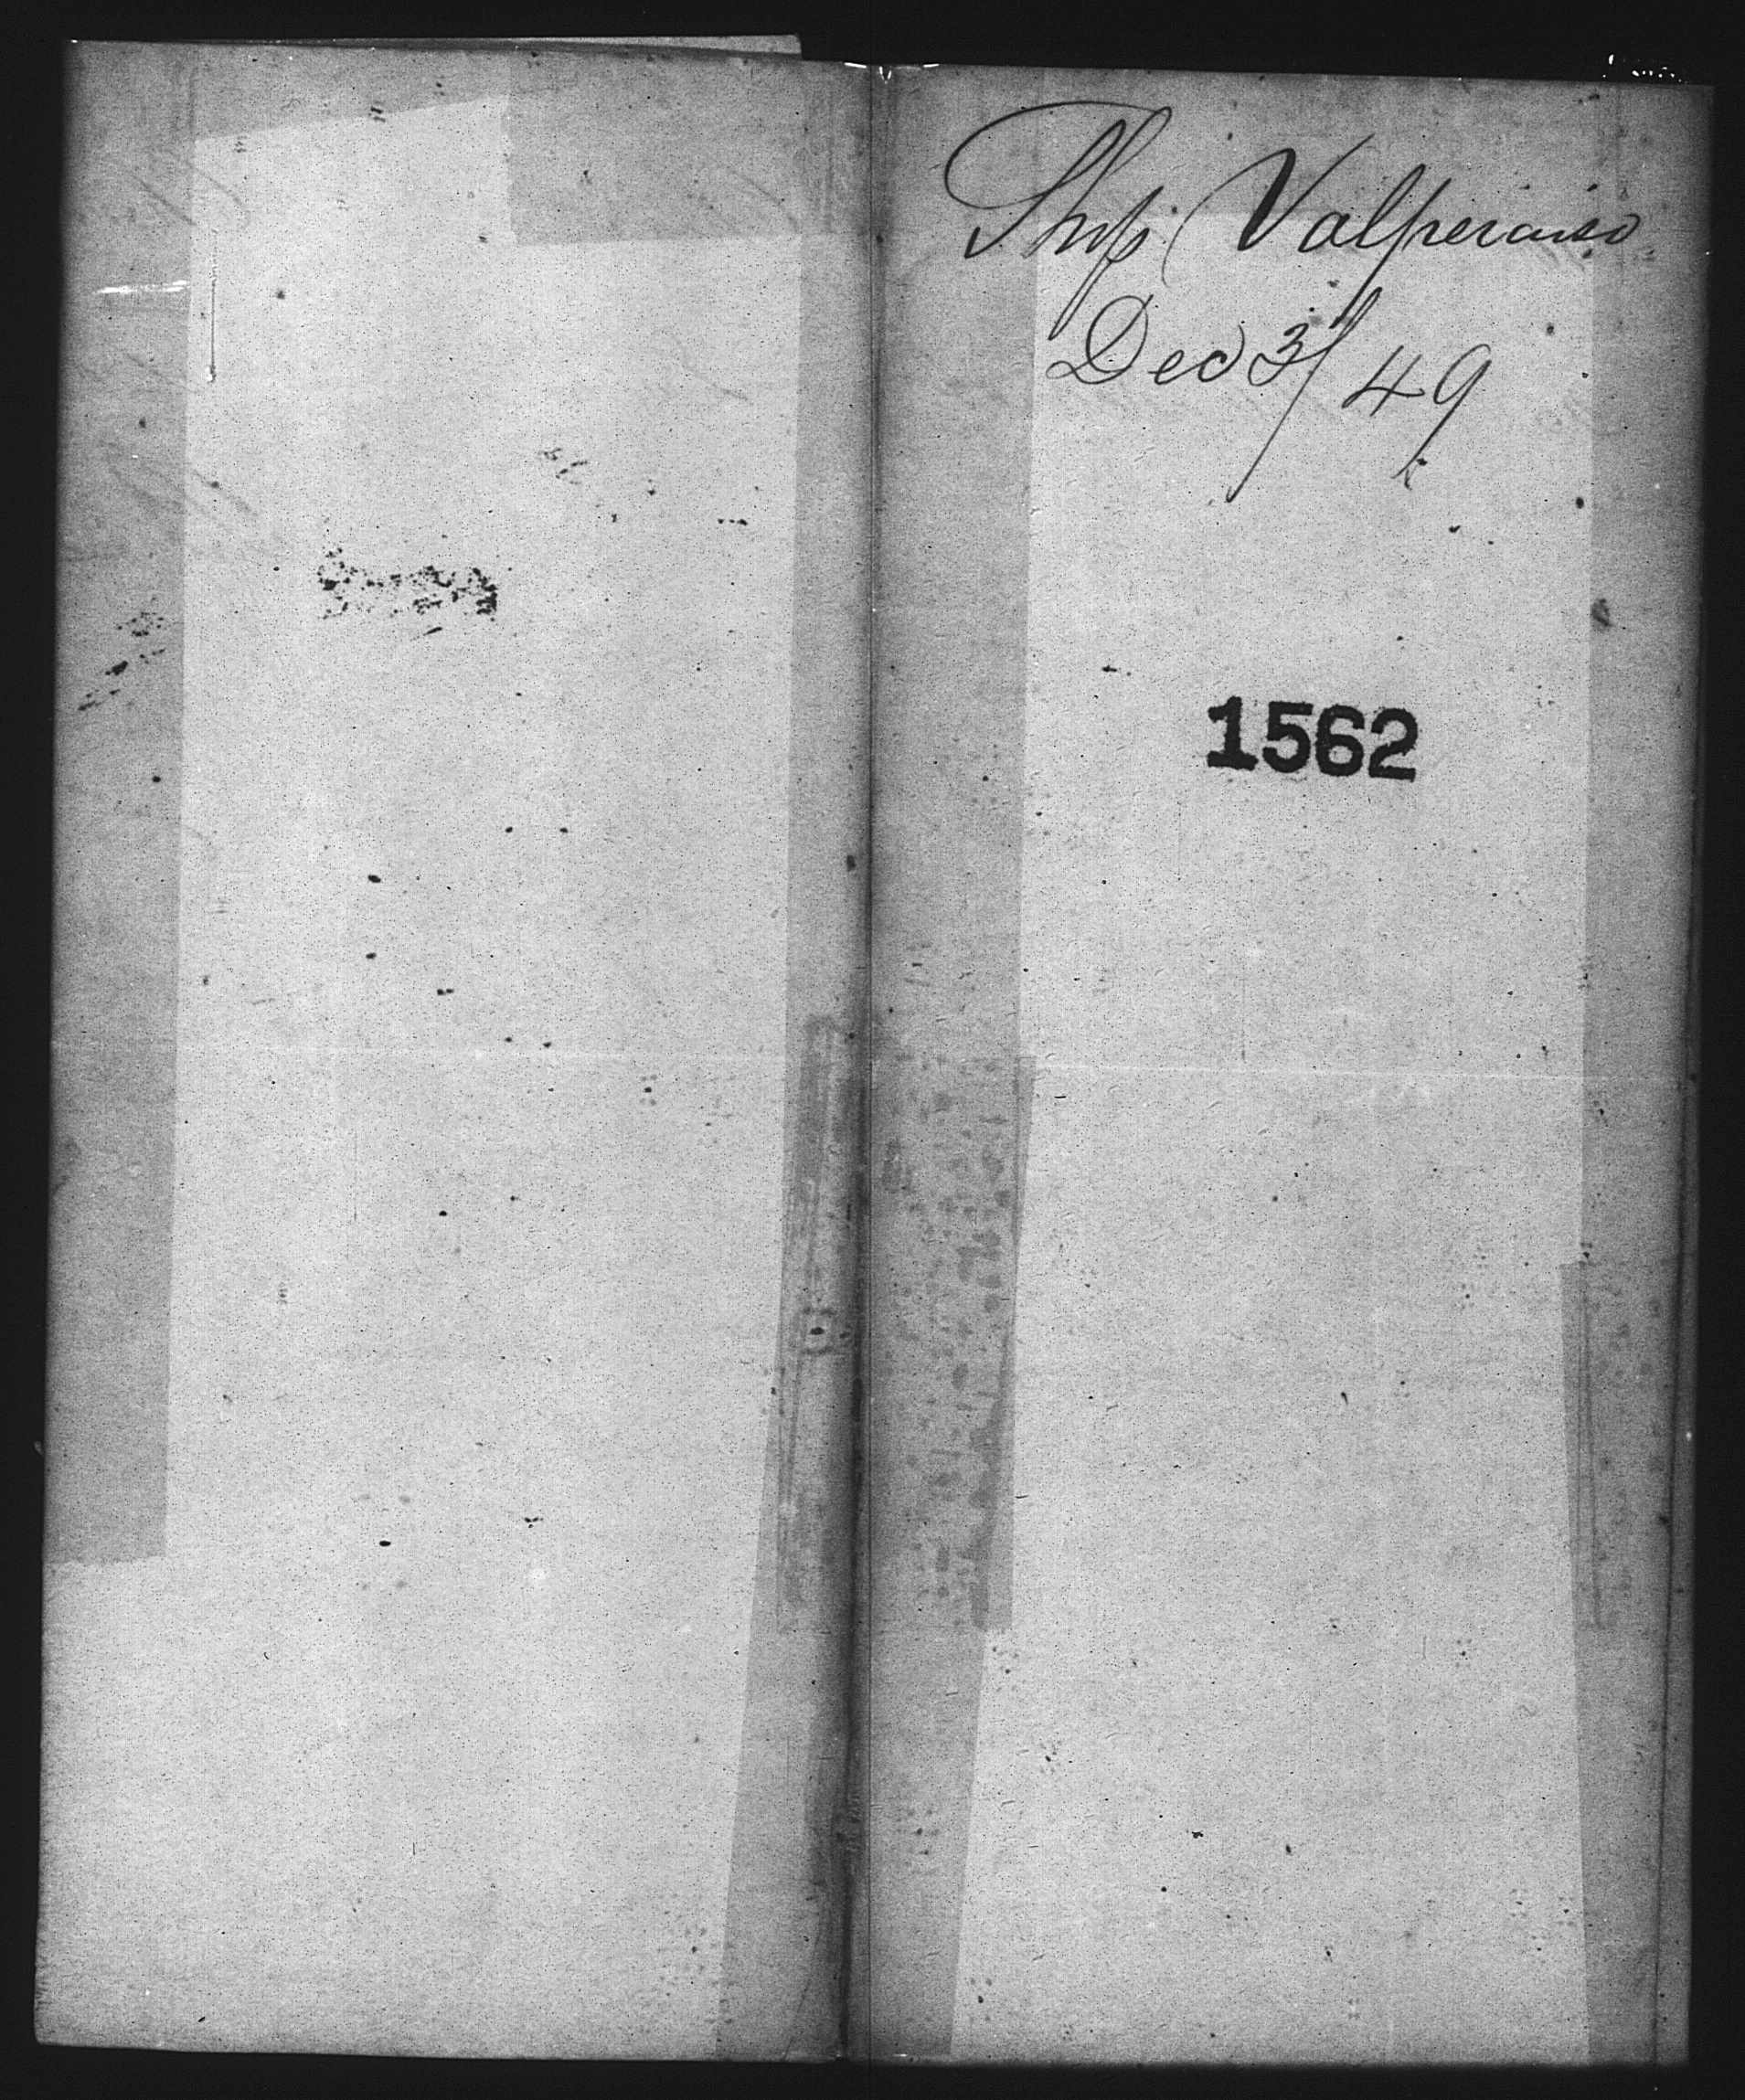 Ship Valperaiso
Dec 3/49
1562